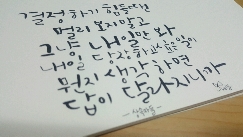 결정하기 힘들때면
멀리 보지말고
그냥, 내일만 봐
내일 당장 하고싶은일이
뭔지 생각하면
답이 달라지니까